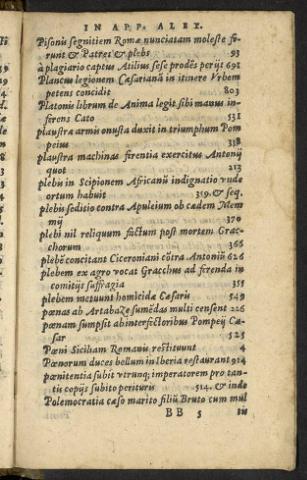 IN APP. ALEX.
Pisonis segnitiem Romæ nunciatam moleste ferunt & Patres & plebs 93
à plagiario captus Atilius sese prodēs perijt 691
Plancus legionem Cæsarianā in itinere Vrbem
petens concidit 803
Platonis librum de Anima legit sibi manus inferens Cato 531
plaustra armis onusta duxit in triumphum Pompeius 338
plaustra machinas ferentia exercitus Antonij
quot 213
plebis in Scipionem Africanū indignatio vnde
ortum habuit 319. & seq.
plebis seditio contra Apuleium ob cædem Memmij 370
plebi nil reliquum factum post mortem Gracchorum 365
plebē concitant Ciceroniani cōtra Antoniū 626
plebem ex agro vocat Gracchus ad ferenda in
comitijs suffragia 355
plebem metuunt homicidæ Cæsaris 549
pœnas ab Artabaze sumēdas multi censent 226
pœnam sumpsit ab interfectoribus Pompeij Cæsar 525
Pœni Siciliam Romanis restituunt 4
Pœnorum duces bellum in Iberia restaurant 914
pœnitentia subit vtrunq; imperatorem pro tantis copijs subito perituris 514. & inde
Polemocratia cæso marito filiū Bruto cum mul
BB 5 tis